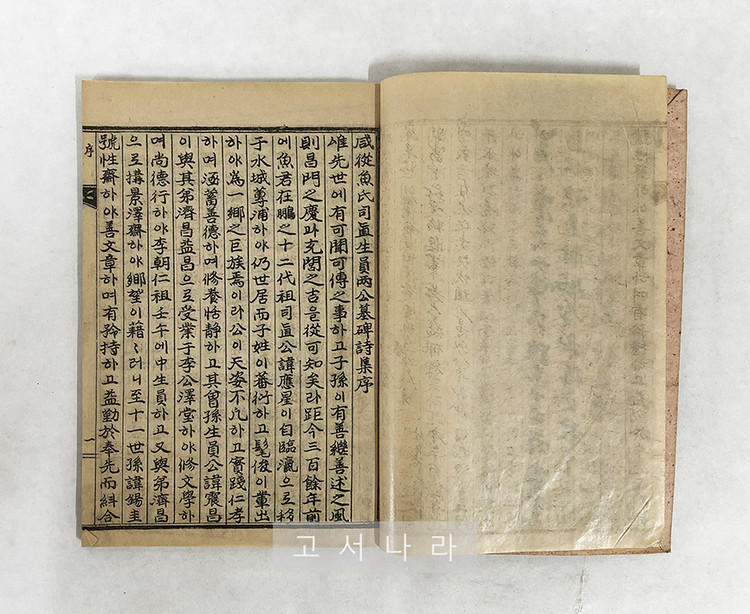 咸從魚氏司直生員兩公墓碑詩集序
雄先世에有可聞可傳之事하고子孫이有善繼善述之風
則昌門之慶과充閭之吉을從可知矣라距今三百餘年前
에魚君在鵬之十二代祖司直公諱應星이自臨瀛으로移
于水城尊浦하야仍世居而子姓이蕃衍하고髦俊이輩出
하야爲一鄕之巨族焉이라公이天姿不凡하고實踐仁孝
하며涵蓄善德하며修養恬靜하고其曾孫生員公諱震昌
이與其弟濟昌益昌으로受業于李公澤堂하야修文學하
며尚德行하야李朝仁祖壬午에中生員하고又與弟濟昌
으로搆景澤齋하야鄕望이籍〻러니至十一世孫諱錫圭
號性齋하야善文章하며有矜持하고益勤於奉先而糾合
序
一
고서나라